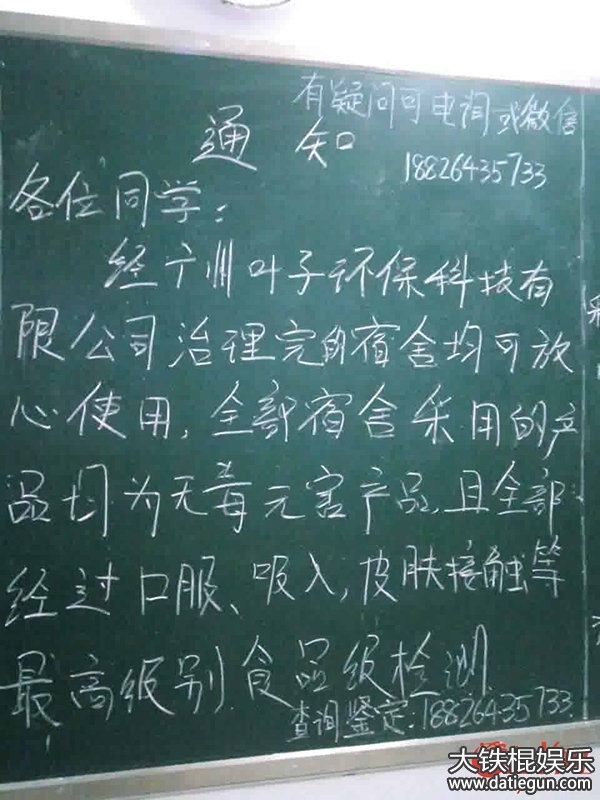 有疑问可电询或微信
18826435733
通知
各位同学:
经广州叶子环保科技有
限公司治理完的宿舍均可放
心使用,全部宿舍采用的产
品均为无毒无害产品,且全部
经过口服、吸入,皮肤接触等
最高级别食品级检测
查询鉴定:18826435733
大铁棍娱乐
www.datiegun.com